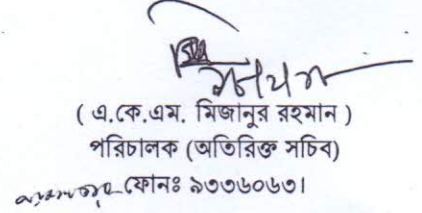 ( এ.কে.এম. মিজানুর রহমান )
পরিচালক (অতিরিক্ত সচিব)
ফোনঃ ৯৩৩৬০৬৩।